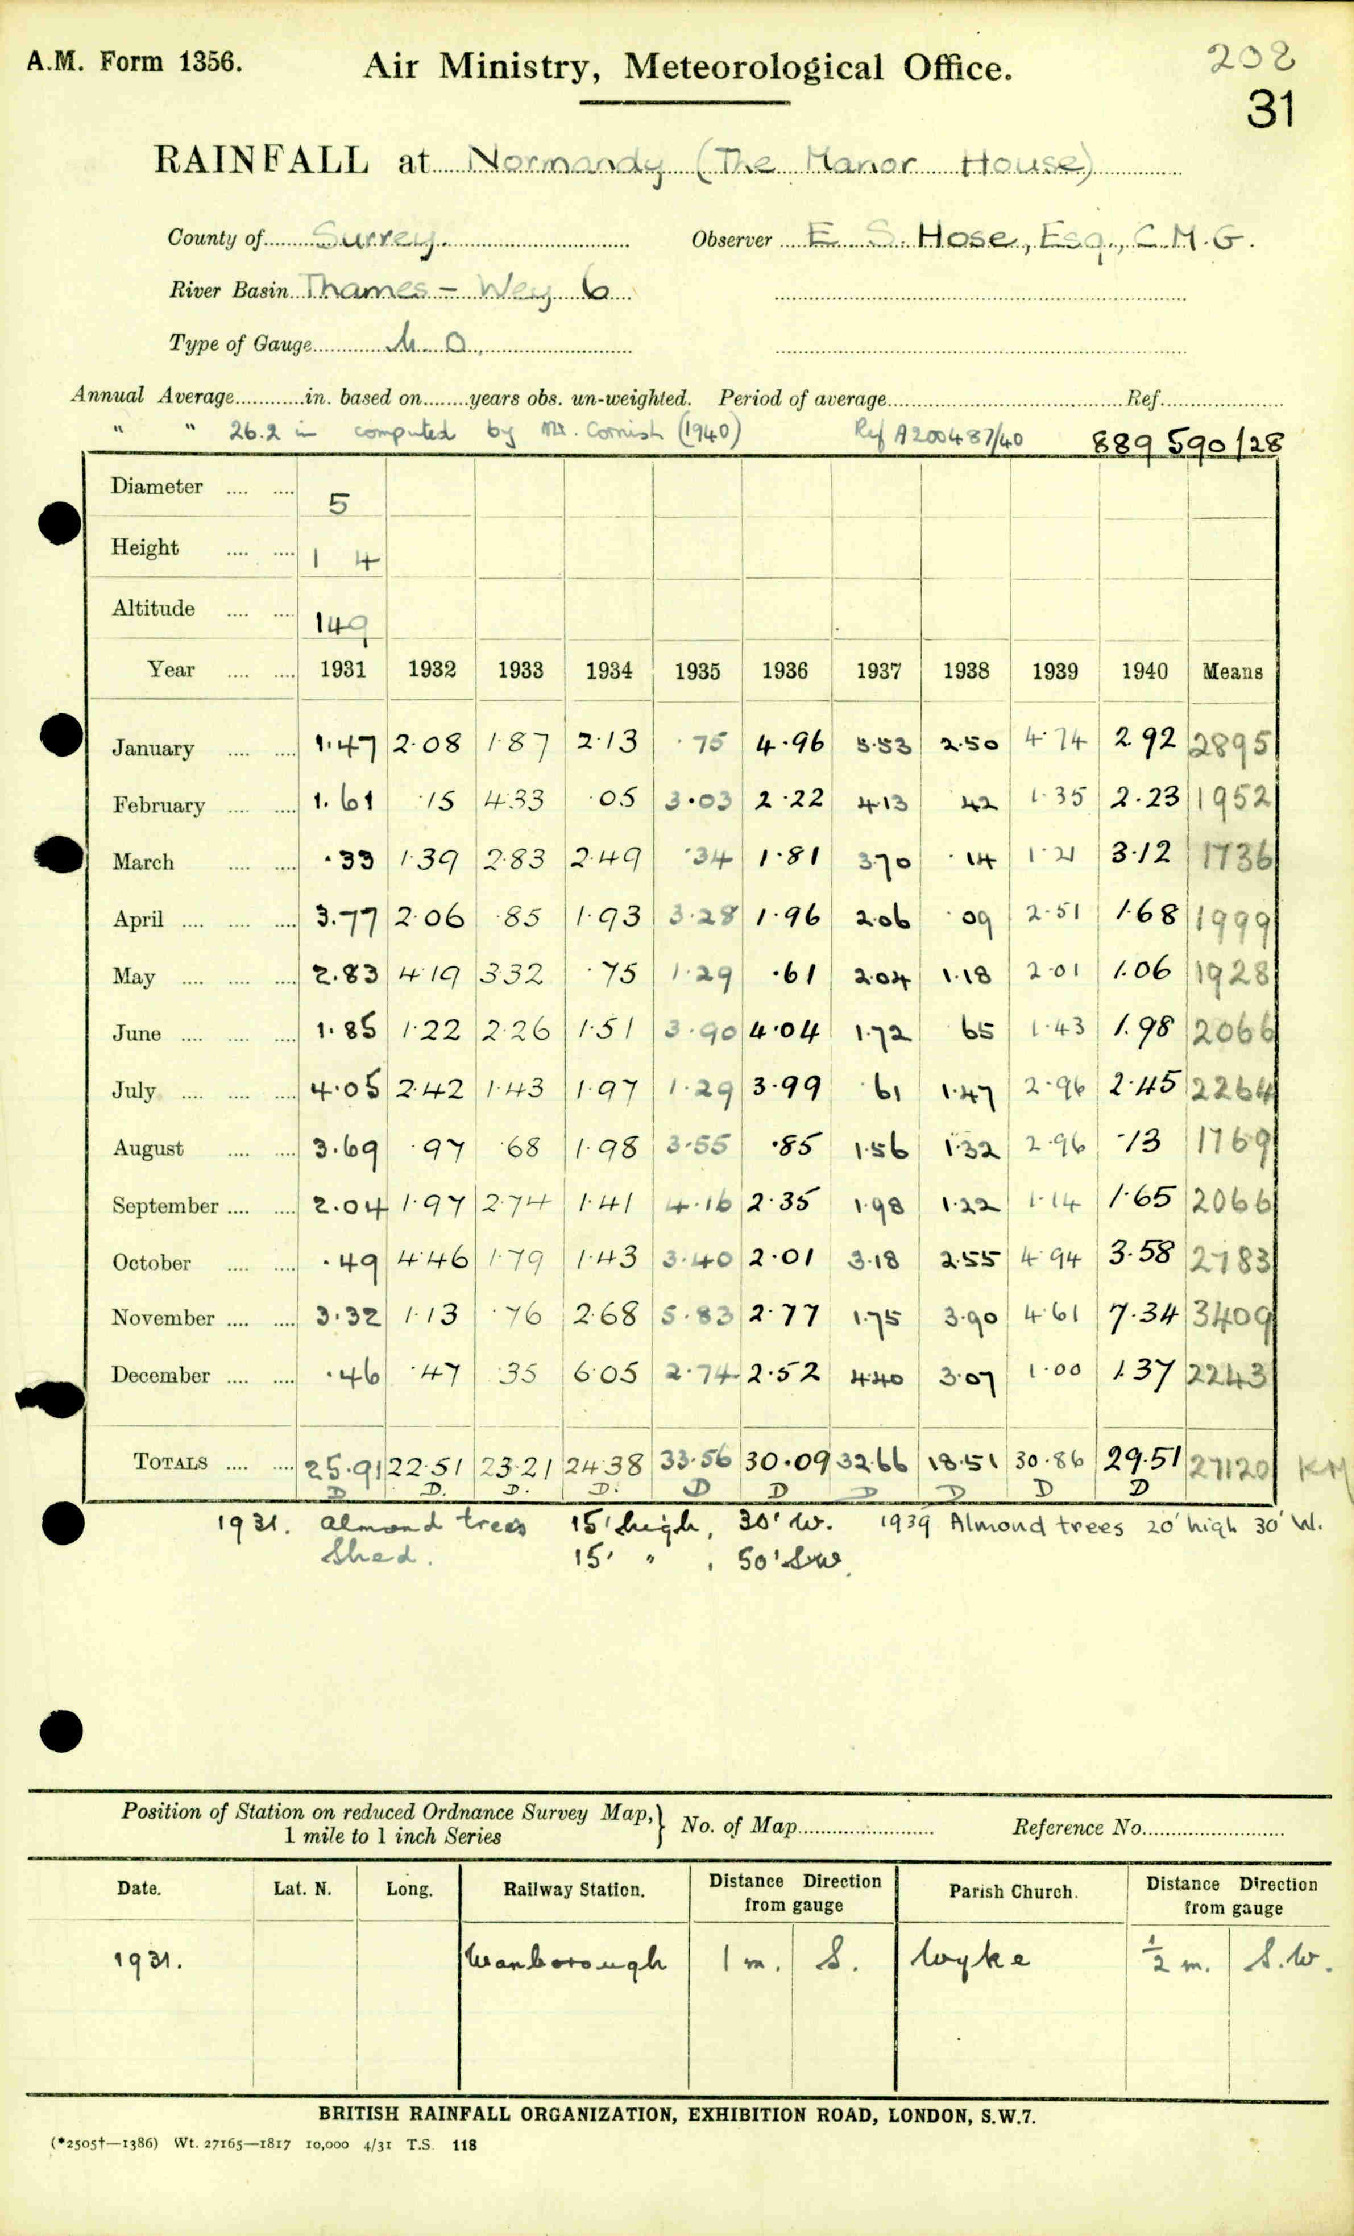 A.M. Form 1356. Air Ministry, Meteorological Office. 208
31
RAINFALL at Normandy (The Manor House)
County of Surrey. Observer E. S. Hose, Esq., C.M.G.
River Basin Thames - Wey 6
Type of Gauge M.O.
Annual Average in. based on years obs. un-weighted. Period of average Ref.
" " 26.2 in computed by Mr. Cornish (1940) Ref A200487/40 889 590/28
Diameter 5
Height 1 4
Altitude 149
Year 1931 1932 1933 1934 1935 1936 1937 1938 1939 1940 Means
January 1.47 2.08 1.87 2.13 .75 4.96 5.53 2.50 4.74 2.92 2895
February 1.61 .15 4.33 .05 3.03 2.22 4.13 .42 1.35 2.23 1952
March .33 1.39 2.83 2.49 .34 1.81 3.70 .14 1.21 3.12 1736
April 3.77 2.06 .85 1.93 3.28 1.96 2.06 .09 2.51 1.68 1999
May 2.83 4.19 3.32 .75 1.29 .61 2.04 1.18 2.01 1.06 1928
June 1.85 1.22 2.26 1.51 3.90 4.04 1.72 .65 1.43 1.98 2066
July 4.05 2.42 1.43 1.97 1.29 3.99 .61 1.47 2.96 2.45 2264
August 3.69 .97 .68 1.98 3.55 .85 1.56 1.32 2.96 .13 1769
September 2.04 1.97 2.74 1.41 4.16 2.35 1.98 1.22 1.14 1.65 2066
October .49 4.46 1.79 1.43 3.40 2.01 3.18 2.55 4.94 3.58 2783
November 3.32 1.13 .76 2.68 5.83 2.77 1.75 3.90 4.61 7.34 3409
December .46 .47 .35 6.05 2.74 2.52 4.40 3.07 1.00 1.37 2243
TOTALS 25.91 22.51 23.21 24.38 33.56 30.09 32.66 18.51 30.86 29.51 27120 KM
D D. D. D. D D D D D D
1931. Almond trees 15' high, 30' W. 1939 Almond trees 20' high 30' W.
Shed. 15' " , 50' SW.
Position of Station on reduced Ordnance Survey Map,} No. of Map Reference No.
1 mile to 1 inch Series
Date. Lat. N. Long. Railway Station. Distance Direction from gauge Parish Church. Distance Direction from gauge
1931. Wanborough 1 m. S. Wyke ½ m. S.W.
BRITISH RAINFALL ORGANIZATION, EXHIBITION ROAD, LONDON, S.W.7.
(*2505†—1386) Wt. 27165—1817 10,000 4/31 T.S. 118